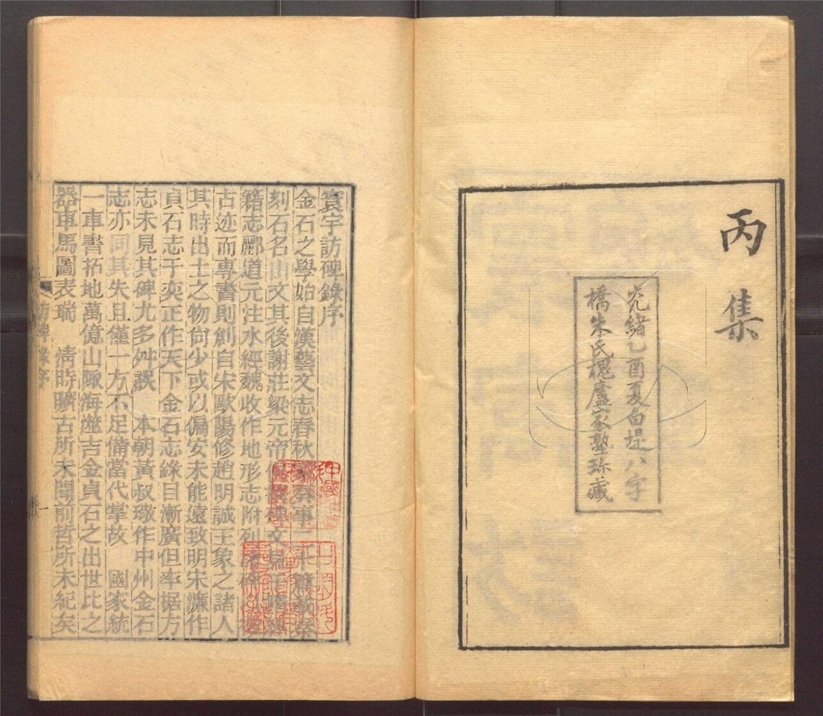 丙集
光緒乙酉夏白堤八字
橋朱氏槐廬家塾珍藏
寰宇訪碑錄序
金石之學始自漢藝文志春秋家奏事二十篇載秦
刻石名山文其後謝莊梁元帝俱撰碑文見于隋經
籍志酈道元注水經魏收作地形志附列諸碑
古迹而專書則創自宋歐陽修趙明誠王象之諸人
其時出土之物尙少或以偏安未能遠致明宋濂作
貞石志于奕正作天下金石志錄目漸廣但率据方
志未見其碑尤多舛誤 本朝黃叔璥作中州金石
志亦同其失且僅一方不足備當代掌故 國家統
一車書拓地萬億山陬海澨吉金貞石之出世比之
器車馬圖表瑞 淸時曠古所未聞前哲所未紀矣
訪碑錄序
一